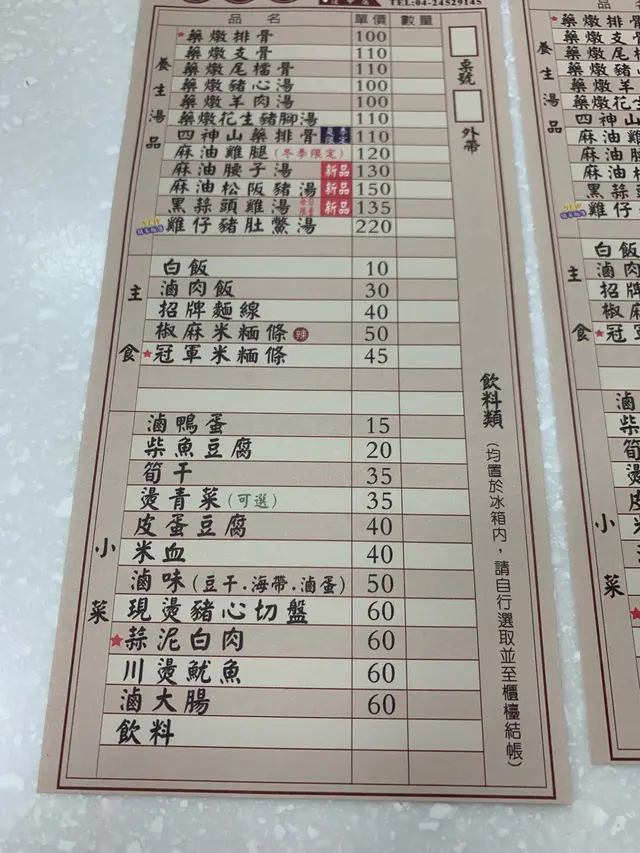 TEL:04-24529145
品名 單價 數量
養生湯品
★藥燉排骨 100
藥燉支骨 110
藥燉尾檔骨 110
藥燉豬心湯 100
藥燉羊肉湯 100
藥燉花生豬腳湯 110
四神山藥排骨 110
麻油雞腿(冬季限定) 120
麻油腰子湯 新品 130
麻油松阪豬湯 新品 150
黑蒜頭雞湯 新品 135
NEW 雞仔豬肚鱉湯 220
主食
白飯 10
滷肉飯 30
招牌麵線 40
椒麻米粬條 辣 50
★冠軍米粬條 45
小菜
滷鴨蛋 15
柴魚豆腐 20
筍干 35
燙青菜(可選) 35
皮蛋豆腐 40
米血 40
滷味(豆干.海帶.滷蛋) 50
現燙豬心切盤 60
★蒜泥白肉 60
川燙魷魚 60
滷大腸 60
飲料
桌號
外帶
飲料類(均置於冰箱內，請自行選取並至櫃檯結帳)
品名
養生湯品
★藥燉排骨
藥燉支骨
藥燉尾檔
藥燉豬
藥燉羊
藥燉花生
四神山
麻油
麻油
麻油
黑蒜
NEW 雞仔
主食
白飯
滷肉
招牌
椒麻
★冠軍
小菜
滷
柴
筍